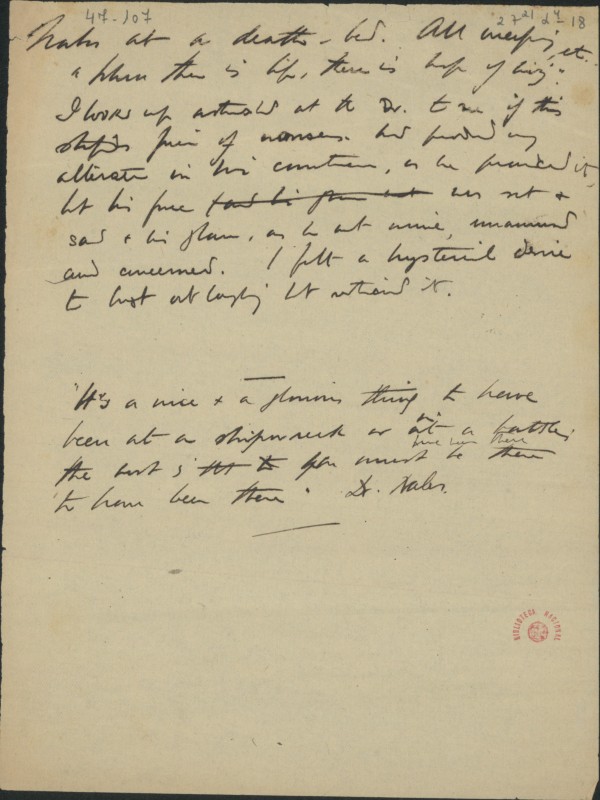 47-107
27 21 2y 18
Nabos at a death-bed. All weeping, etc.
"Where there is life, there is hope of living."
I looked up astonished at the Dr. to see if this
stupid piece of nonsense had produced any
alteration in his countenance, as he pronounced it,
but his face was set &
sad & his glance, as he met mine, unamused
and concerned. I felt a hysterical desire
to burst out laughing but restrained it.
"It's a nice & a glorious thing to have
been at a shipwreck or in a battle;
have been there
the worst is you must be there
to have been there." Dr. Nabos.
BIBLIOTECA NACIONAL